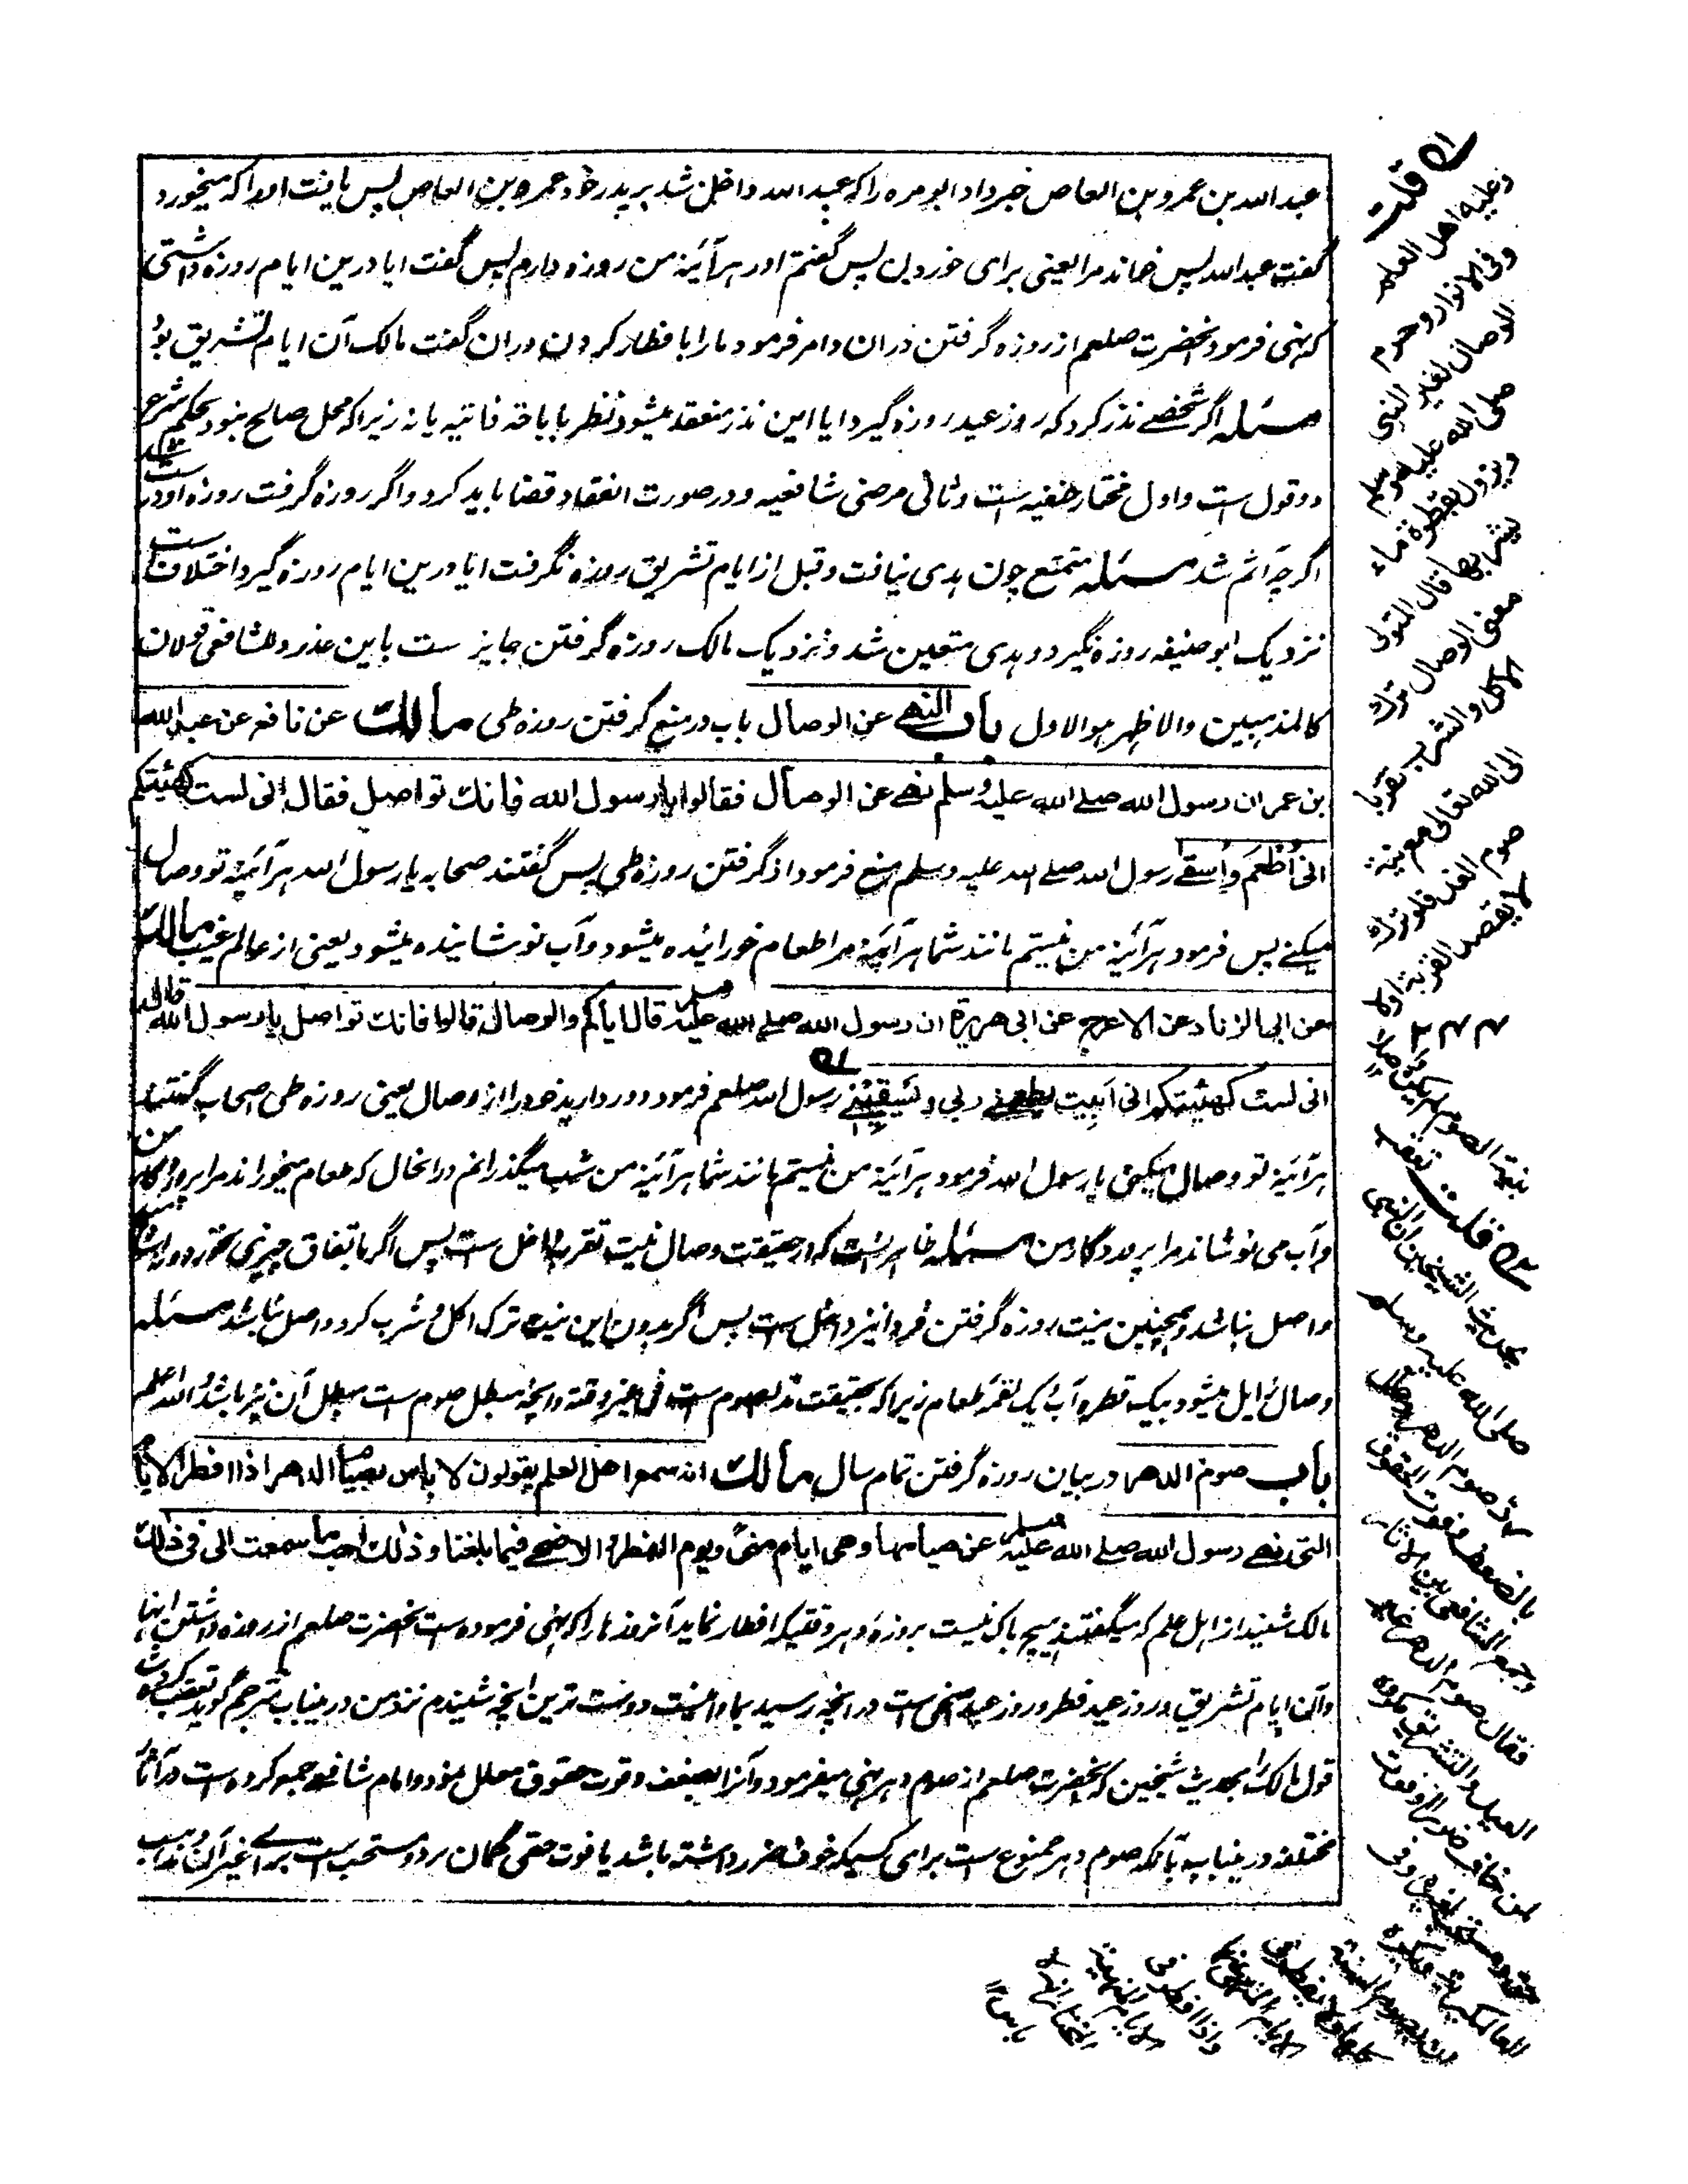 عبد الله بن عمرو بن العاص خبر داد ابو مره را که عبد الله داخل شد بر پدر خود عمرو بن العاص پس یافت او را که میخورد
گفت عبد الله پس خواند مرا یعنی برای خوردن پس گفتم او را هرآئینه من روزه دارم پس گفت ایا درین ایام روزه داشتی
که نهی فرمود آنحضرت صلعم از روزه گرفتن دران و امر فرمود ما را بافطار کردن دران گفت مالک آن ایام تشریق بود
مسئله اگر شخصے نذر کرد که روز عید روزه گیرد ایا این نذر منعقد میشود نظر باباحة فانیه یا نه زیرا که محل صالح نبود بحکم شرع
دو قول است و اول مختار حنفیه است و ثانی مرضی شافعیه و در صورت انعقاد قضا باید کرد و اگر روزه گرفت روزه او درست
اگرچه آثم شد مسئله متمتع چون هدی نیافت و قبل از ایام تشریق روزه نگرفت ایا درین ایام روزه گیرد اختلاف است
نزدیک ابو حنیفه روزه نگیرد و هدی متعین شد و نزدیک مالک روزه گرفتن جایز ست باین عذر و للشافعی قولان
کالمذهبین والاظهر هو الاول باب النهے عن الوصال باب در منع گرفتن روزه طی مالك عن نافع عن عبد الله
بن عمر ان رسول الله صلے الله علیه وسلم نهے عن الوصال فقالوا یا رسول الله فانك تواصل فقال انی لست کهیئتکم
انی اُطعَم واُسقے رسول الله صلے الله علیه وسلم منع فرمود از گرفتن روزه طی پس گفتند صحابه یا رسول الله هرآئینه تو وصال
میکنے پس فرمود هرآئینه من نیستم مانند شما هرآئینه مرا طعام خورانیده میشود و آب نوشانیده میشود یعنی از عالم غیب مالك
عن ابی الزناد عن الاعرج عن ابی هریرة ان رسول الله صلے الله علیه وسلم قال ایاکم والوصال قالوا فانك تواصل یا رسول الله قال
انی لست کهیئتکم انی اَبِیت یطعمنے ربی ویَسقِینے رسول الله صلعم فرمود دور دارید خود را از وصال یعنی روزه طی اصحاب گفتند
هرآئینه تو وصال میکنی یا رسول الله فرمود هرآئینه من نیستم مانند شما هرآئینه من شب میگذرانم درانحال که طعام میخوراند مرا پروردگار من
و آب می نوشاند مرا پروردگار من مسئله ظاهر انست که در حقیقت وصال نیت تقرب داخل ست پس اگر باتفاق چیزی نخورد
واصل نباشد و همچنین نیت روزه گرفتن فردا نیز داخل ست پس اگر بدون این نیت ترک اکل و شرب کرد واصل نباشد مسئله
وصال زایل میشود بیک قطره آب و یک لقمه طعام زیرا که بحقیقت صوم است فی غیر وقته و انچه مبطل صوم است مبطل آن نیز باشد والله اعلم
باب صوم الدهر در بیان روزه گرفتن تمام سال مالك انه سمع اهل العلم یقولون لا باس بصیام الدهر اذا افطر الایام
التی نهے رسول الله صلے الله علیه وسلم عن صیامها وهی ایام منیً ویوم الفطر والاضحے فیما بلغنا وذلك احب ما سمعت الی فی ذلك
مالک شنید از اهل علم که میگفتند هیچ باک نیست بروزه دهر وقتیکه افطار نماید آن روزها را که نهی فرموده ست آنحضرت صلعم از روزه داشتن آنها
و آن ایام تشریق و روز عید فطر و روز عید اضحی ست در انچه رسید بما و اینست دوست ترین انچه شنیدم نزد من درینباب مترجم گوید تعقب کرده شد
قول مالک را بحدیث شیخین که آنحضرت صلعم از صوم دهر نهی میفرمود و آنرا بضعف و فوت حقوق معلل نمود و امام شافعی جمع کرده ست در آثار
مختلفه درینباب بآنکه صوم دهر ممنوع ست برای کسیکه خوف ضرر داشته باشد یا فوت حقی گمان برد و مستحب ست برائے غیر آن
قلت
وعلیه اهل العلم
وفی الانوار وحرم
الوصال لغیر النبی
صلی الله علیه وسلم
ویزول بقطرة ماء
یشربها قال المتولی
معنی الوصال ترك
الاکل والشرب تقربا
الی الله تعالی مع نیة
صوم الغد فلو ترك
لا بقصد القربة او لا
بنیة الصوم لم یکن
قلت تعقب
بحدیث الشیخین ان النبی
صلی الله علیه وسلم
صوم الدهر
بالضعف وفوت الحقوق
وجمع الشافعی بین الاثار
فقال صوم الدهر غیر
العید والتشریق مکروه
لمن خاف ضررا او فوت
حق ومستحب لغیره وفی
العالمگیریة ویکره
صوم السنة
کلها ولا یفطر فی
الایام المنهی عنها
واذا افطر فی
الایام المنهیة
المختار انه لا
باس